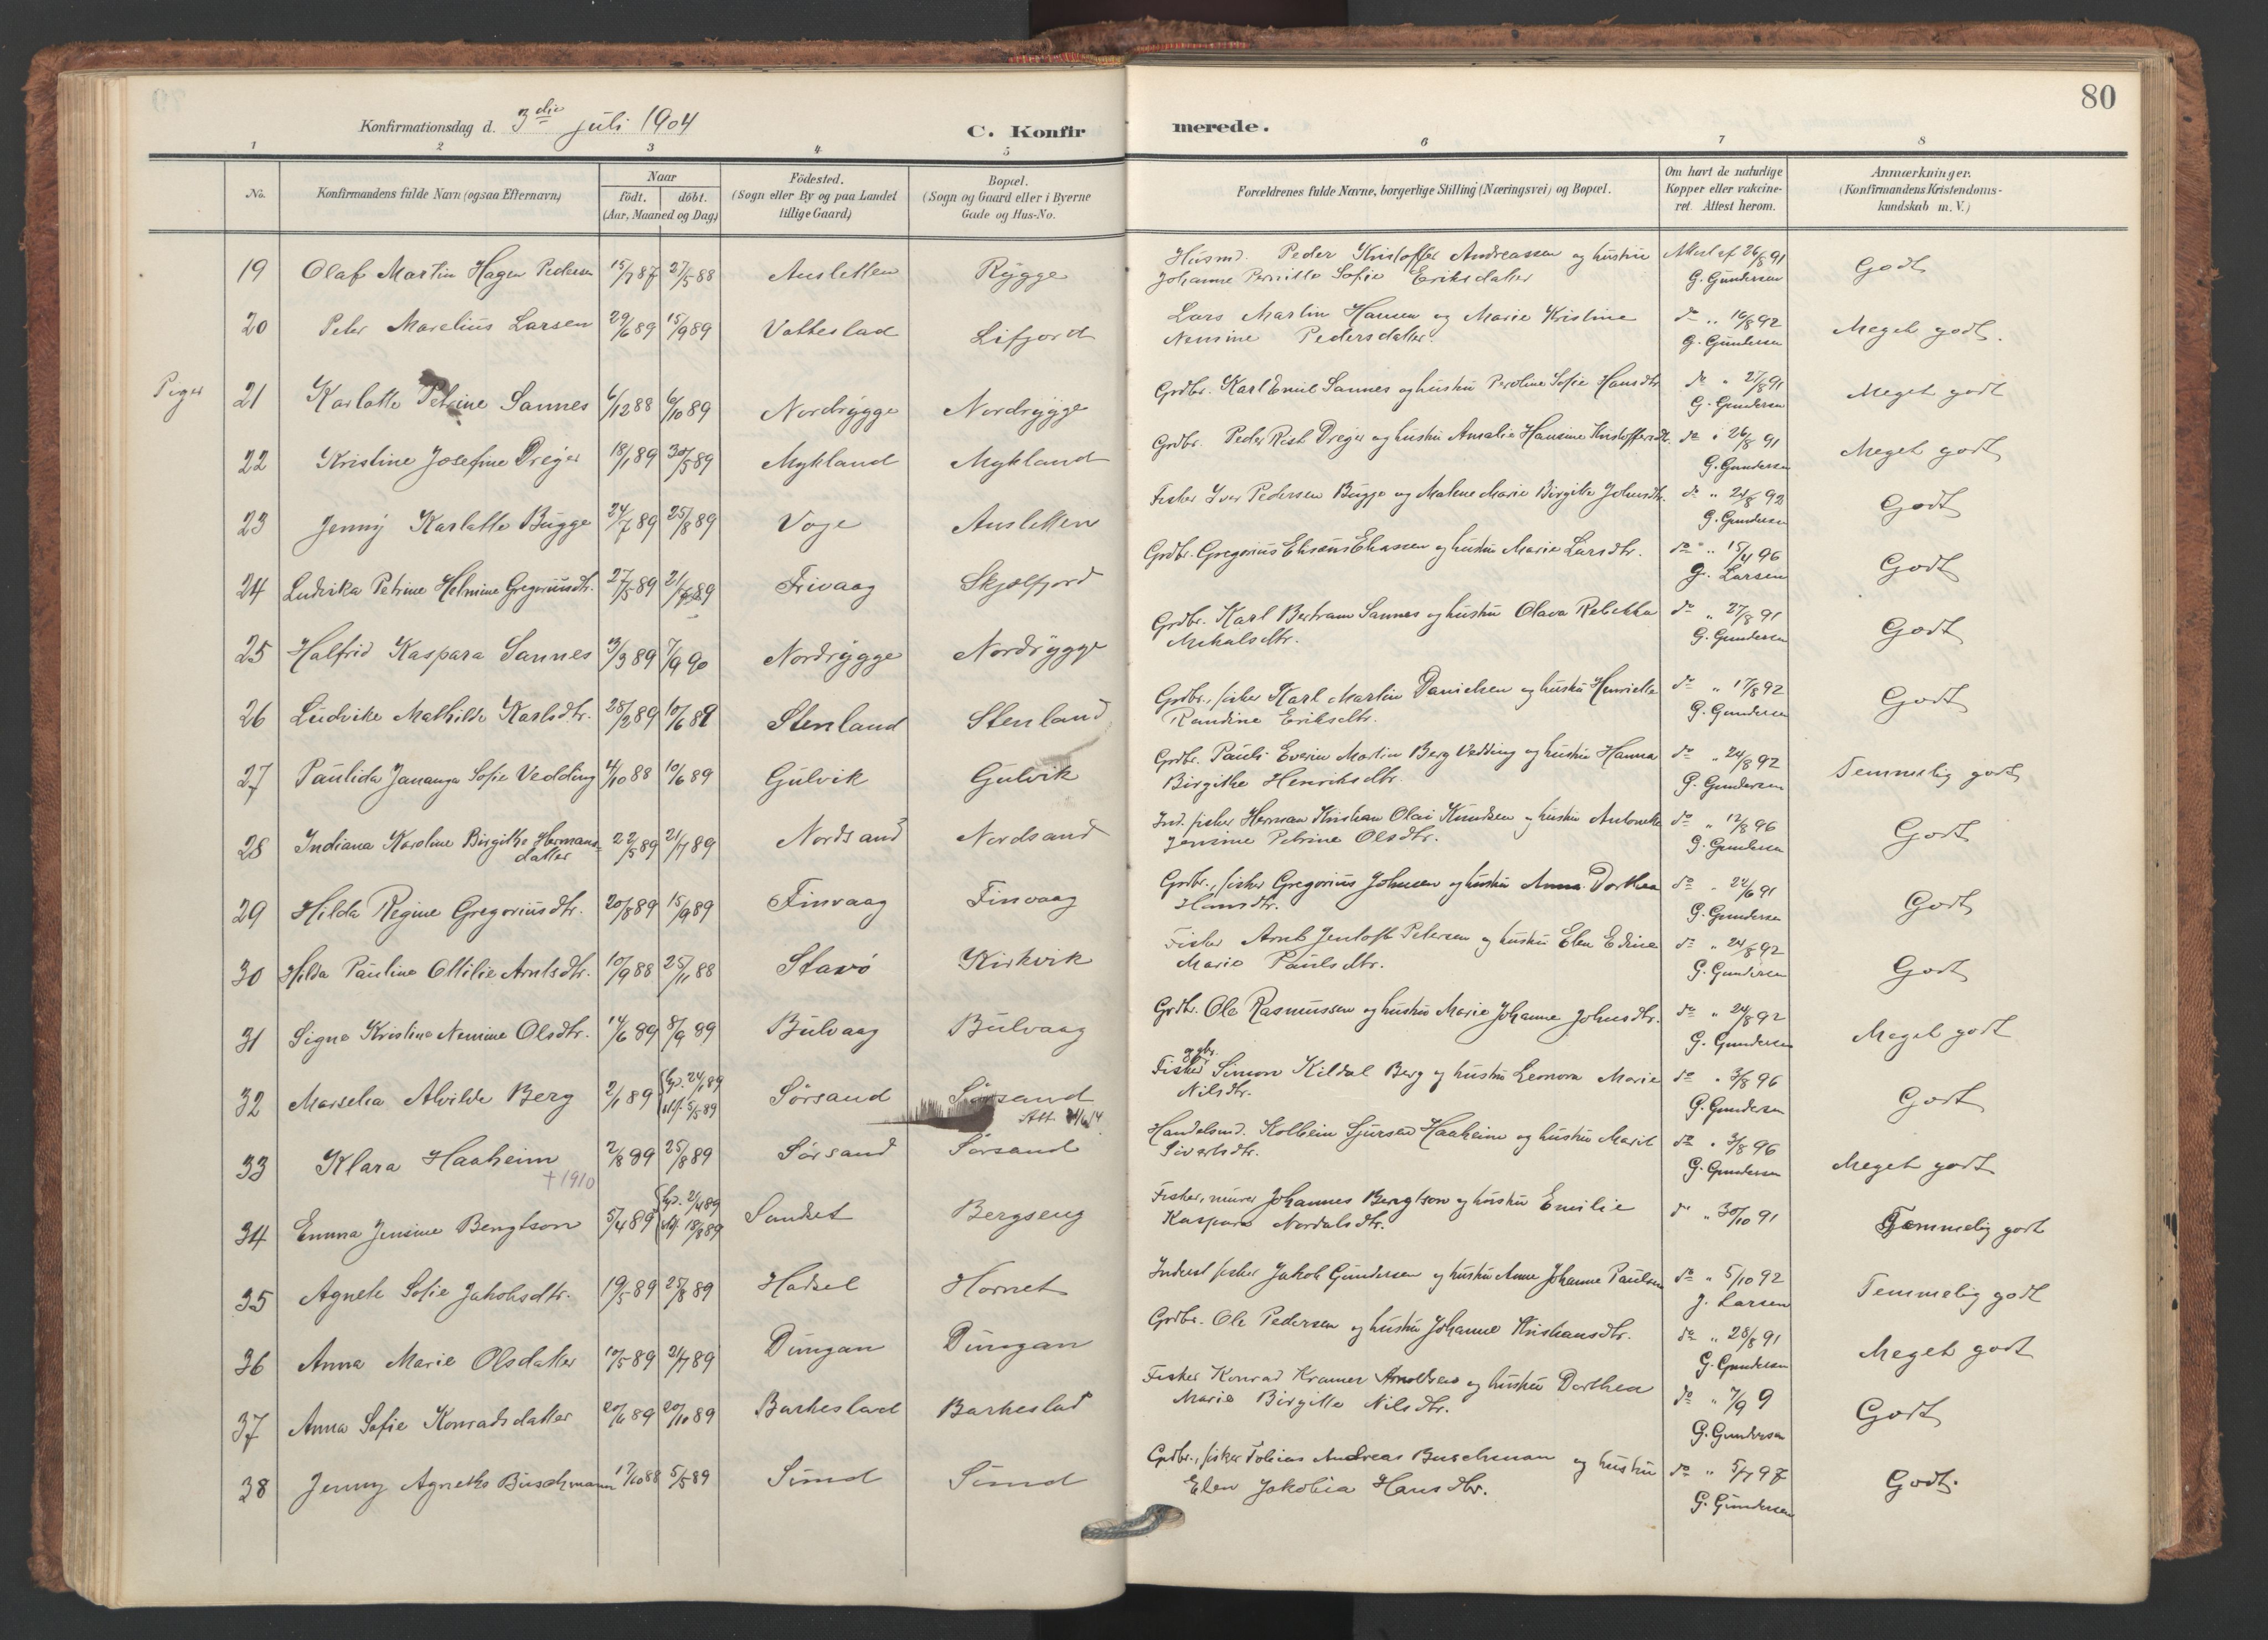 80
Konfirmationsdag d. 3die juli 1904
C. Konfirmerede.
1 2 3 4 5 6 7 8
No. Konfirmandens fulde Navn (ogsaa Efternavn) Naar födt. döbt. (Aar, Maaned og Dag) Födested. (Sogn eller By og paa Landet tillige Gaard) Bopæl. (Sogn og Gaard eller i Byerne Gade og Hus-No. Forældrenes fulde Navne, borgerlige Stilling (Næringsvei) og Bopæl. Om havt de naturlige Kopper eller vakcineret. Attest herom. Anmærkninger. (Konfirmandens Kristendomskundskab m. V.)
19 Olaf Martin Hagen Pedersen 15/7 87 27/5 88 Ausletten Rygge Husmd. Peder Kristoffer Andreassen og hustru Johanne Pernille Sofie Eriksdatter Attest af 26/8 91 G. Gundersen Godt
20 Peter Marelius Larsen 29/6 89 15/9 89 Vatteslad Lifjord Lars Martin Hansen og Marie Kristine Nensine Pedersdatter. do „ 16/8 92 G. Gundersen Meget godt.
Piger
21 Karlotte Petrine Sannes 6/12 88 6/10 89 Nordrygge Nordrygge Grdbr. Karl Emil Sannes og hustru Peroline Sofie Hansdtr. do „ 27/8 91 G. Gundersen Meget godt
22 Kristine Josefine Dreyer 18/1 89 30/5 89 Mykland Mykland Grdbr. Peder Rist Dreyer og hustru Amalie Hansine Kristoffersdtr. do „ 26/8 91 G. Gundersen Meget godt
23 Jenny Karlotte Bugge 24/7 89 25/8 89 Voje Ausletten Fisker Iver Pedersen Bugge og Malene Marie Birgitte Johnsdtr. do „ 24/8 92 G. Gundersen Godt
24 Ludvika Petrine Helmine Gregoriusdtr. 27/5 89 21/7 89 Frivaag Skjælfjord Grdbr. Gregorius Eliseus Eliassen og hustru Marie Larsdtr. do „ 15/4 96 G. Larsen Godt
25 Halfrid Kaspara Sannes 3/3 89 7/9 90 Nordrygge Nordrygge Grdbr. Karl Bertram Sannes og hustru Olava Rebekka Mikalsdtr. do „ 27/8 91 G. Gundersen Godt
26 Ludvike Mathilde Karlsdtr. 28/2 89 10/6 89 Stenland Stenland Grdbr., fisker Karl Martin Danielsen og hustru Henriette Randine Eriksdtr. do „ 17/8 92 G. Gundersen Godt
27 Paulida Jananga Sofie Vedding 4/10 88 10/6 89 Gulvik Gulvik Grdbr. Pauli Everin Martin Berg Vedding og hustru Hanna Birgithe Henriksdtr. do „ 24/8 92 G. Gundersen Temmelig godt
28 Indiana Karoline Birgithe Hermansdatter 22/5 89 21/7 89 Nordsand Nordsand Ind. fisker Herman Kristian Olai Knudsen og hustru Antonette Jensine Petrine Olsdtr. do „ 12/8 96 G. Gundersen Godt
29 Hilda Regine Gregoriusdtr. 20/8 89 15/9 89 Finvaag Finvaag Grdbr., fisker Gregorius Johnsen og hustru Anna Dorthea Hansdtr. do „ 24/6 91 G. Gundersen Godt
30 Hilda Pauline Ottilie Arntsdtr. 10/9 88 25/11 88 Stavø Kirkvik Fisker Arnt Jentoft Petersen og hustru Elen Edine Marie Paulsdtr. do „ 24/8 92 G. Gundersen Godt
31 Signe Kristine Nensine Olsdtr. 14/6 89 8/9 89 Bulvaag Bulvaag Grdbr. Ole Rasmussen og hustru Marie Johanne Johnsdtr. do „ 24/8 92 G. Gundersen Meget godt
32 Marselia Alvilde Berg 2/1 89 hjd. 24/1 89 stf. 5/5 89 Sørsand Sørsand Att. Fisker og gbr. Simon Kildal Berg og hustru Leonora Marie Nilsdtr. do „ 3/8 96 G. Gundersen Godt
33 Klara Haaheim † 1910 2/8 89 25/8 89 Sørsand Sørsand Handelsmd. Kolbein Sjursen Haaheim og hustru Marit Sivertsdtr. do „ 3/8 96 G. Gundersen Meget godt
34 Emma Jensine Bengtson 5/4 89 hjd. 21/4 89 stf. 18/8 89 Sandset Bergseng Fisker, murer Johannes Bengtson og hustru Emilie Kaspara Nordalsdtr. do „ 30/10 91 Temmelig godt
35 Agnete Sofie Jakobsdtr. 19/5 89 25/8 89 Hadsel Hornet Inderst fisker Jakob Gundersen og hustru Anne Johanne Paulsen do „ 5/10 92 J. Larsen Temmelig godt
36 Anna Marie Olsdatter 10/5 89 21/7 89 Dungan Dungan Grdbr. Ole Pedersen og hustru Johanne Kristiansdtr. do „ 28/8 91 G. Gundersen Meget godt
37 Anna Sofie Konradsdatter 20/6 89 20/10 89 Barkeslad Barkeslad Fisker Konrad Kramer Arnoldsen og hustru Dorthea Marie Birgitte Nilsdtr. do „ 7/9 9 G. Gundersen Godt
38 Jenny Agnethe Buschmann 17/10 88 5/5 89 Sund Sund Grdbr., fisker Tobias Andreas Buschmann og hustru Elen Jakobia Hansdtr. do „ 5/7 97 G. Gundersen Godt.